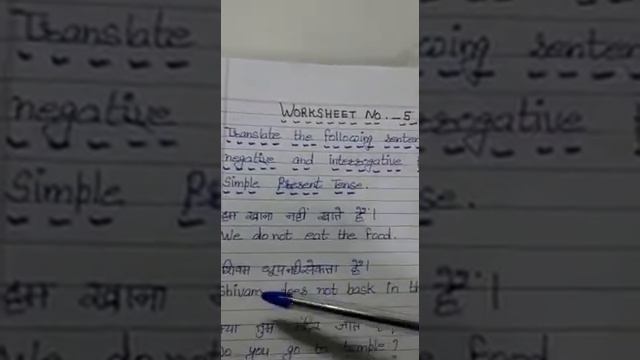 WORKSHEET NO. - 5
Translate the following senten
negative and interrogative
Simple Present Tense.
हम खाना नहीं खाते हैं।
We do not eat the food.
शिवम धूप नहीं सेकता है।
Shivam does not bask in th
क्या तुम जाते
Do you go to temple?